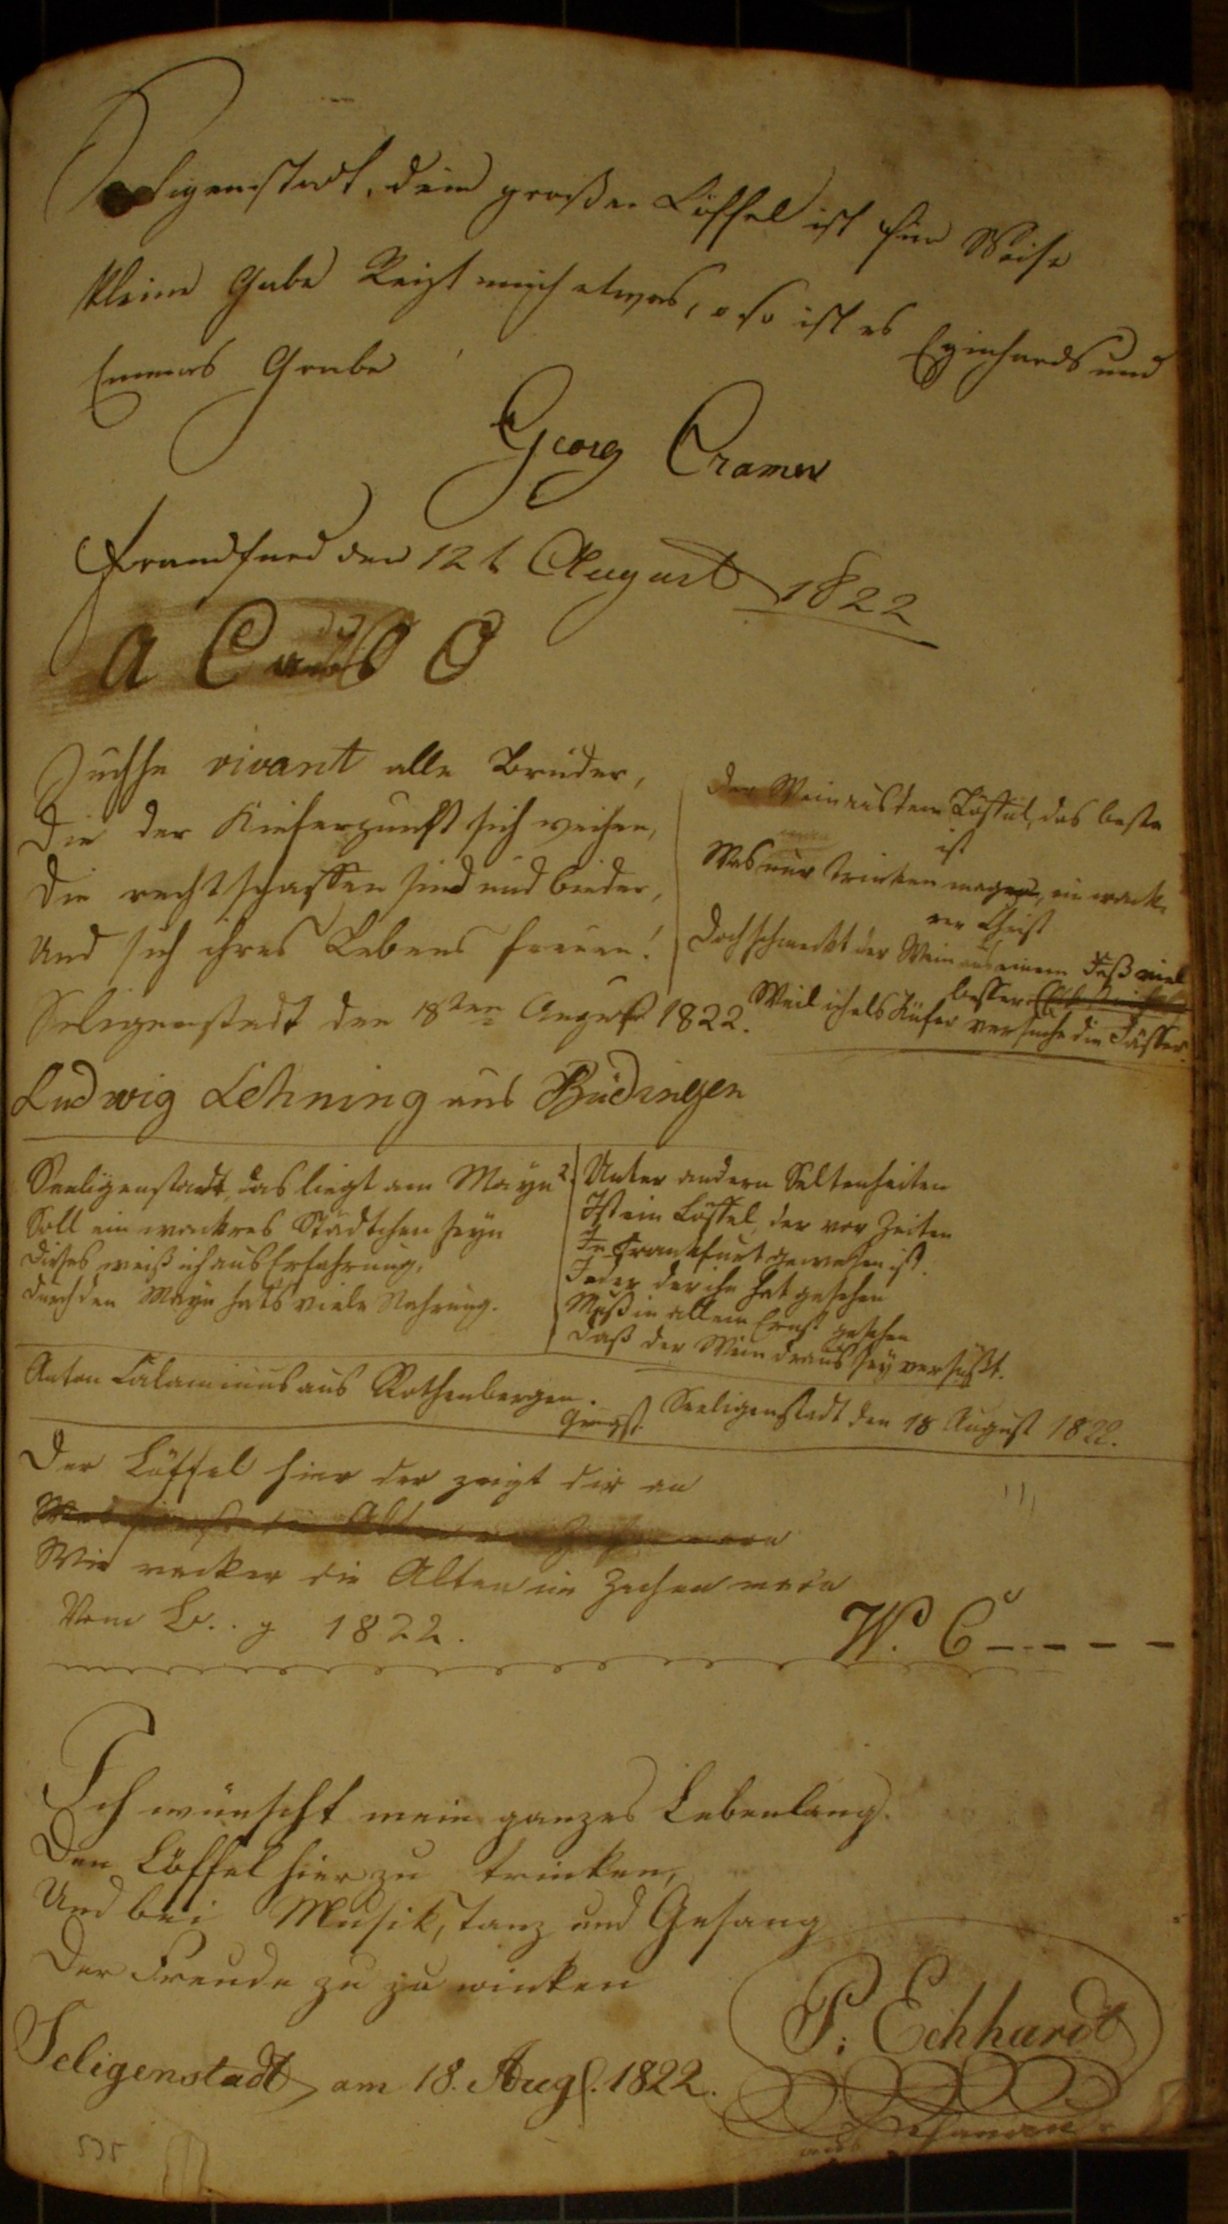 Seligenstadt, dein großer Löffel ist für Weise
kleine Gabe Reizt mich etwas, so ist es Eginhards und
Emmas Grabe
Georg Cramer
den 12t August 1822
Juchhe vivant alle Brüder,
Die der Kieferzunft sich weihen,
Die rechtschaffen sind und bieder,
Und sich ihres Lebens freuen!
Seligenstadt den 18ten August 1822.
Ludwig Lehning aus Büdingen
Der Wein aus dem Löffel, das beste
ist
Was nur trinken mag, ein wack-
rer Christ
Doch schmeckt der Wein aus einem Faß viel
besser
Weil ich als Küfer versuche die Fässer.
Seeligenstadt, das liegt am Mayn
Soll ein wackres Städtchen seyn
Dieses weiß ich aus Erfahrung,
Durch den Mayn hats viele Nahrung.
2. Unter andern Seltenheiten
Ist ein Löffel, der vor Zeiten
In Frankfurt gewesen ist.
Jeder der ihn hat gesehen
Muß in allem Ernst gestehen
Daß der Wein draus sey versüßt.
Anton Calaminus aus Rothenbergen.
Seeligenstadt den 18 August 1822.
Der Löffel hier der zeigt dir an
Wie wacker die Alten im Zechen warn
Vom L...g 1822.
W. C - - - - -
Ich wünscht mein ganzes Lebenlang.
Den Löffel hier zu trinken,
Und bei Musik, Tanz und Gesang
Der Freude zu zu winken
P. Eckhardt
Seligenstadt am 18. Aug. 1822.
aus Hanau
535